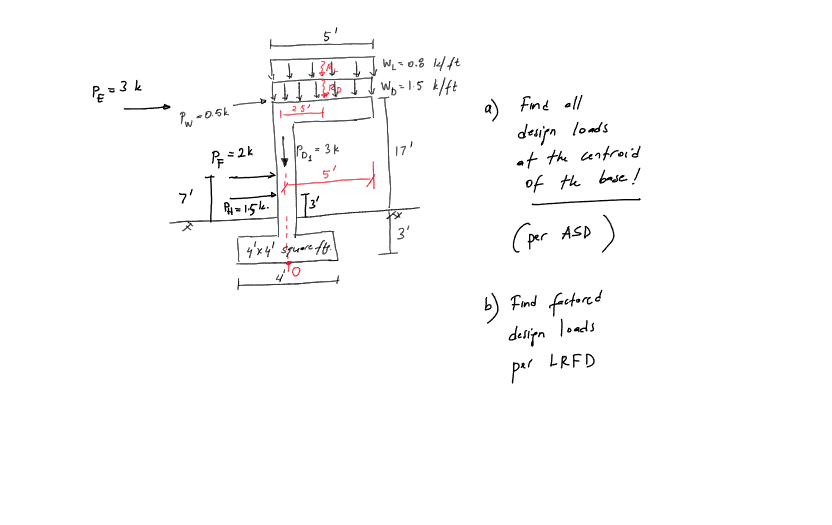 5'
W_L = 0.8 k/ft
W_D = 1.5 k/ft
P_E = 3 k
P_W = 0.5k
2.5'
P_D1 = 3k
17'
P_F = 2k
5'
7'
P_H = 1.5k.
3'
3'
4'x4' square ft.
O
4'
a) Find all
design loads
at the centroid
of the base!
(per ASD)
b) Find factored
design loads
per LRFD